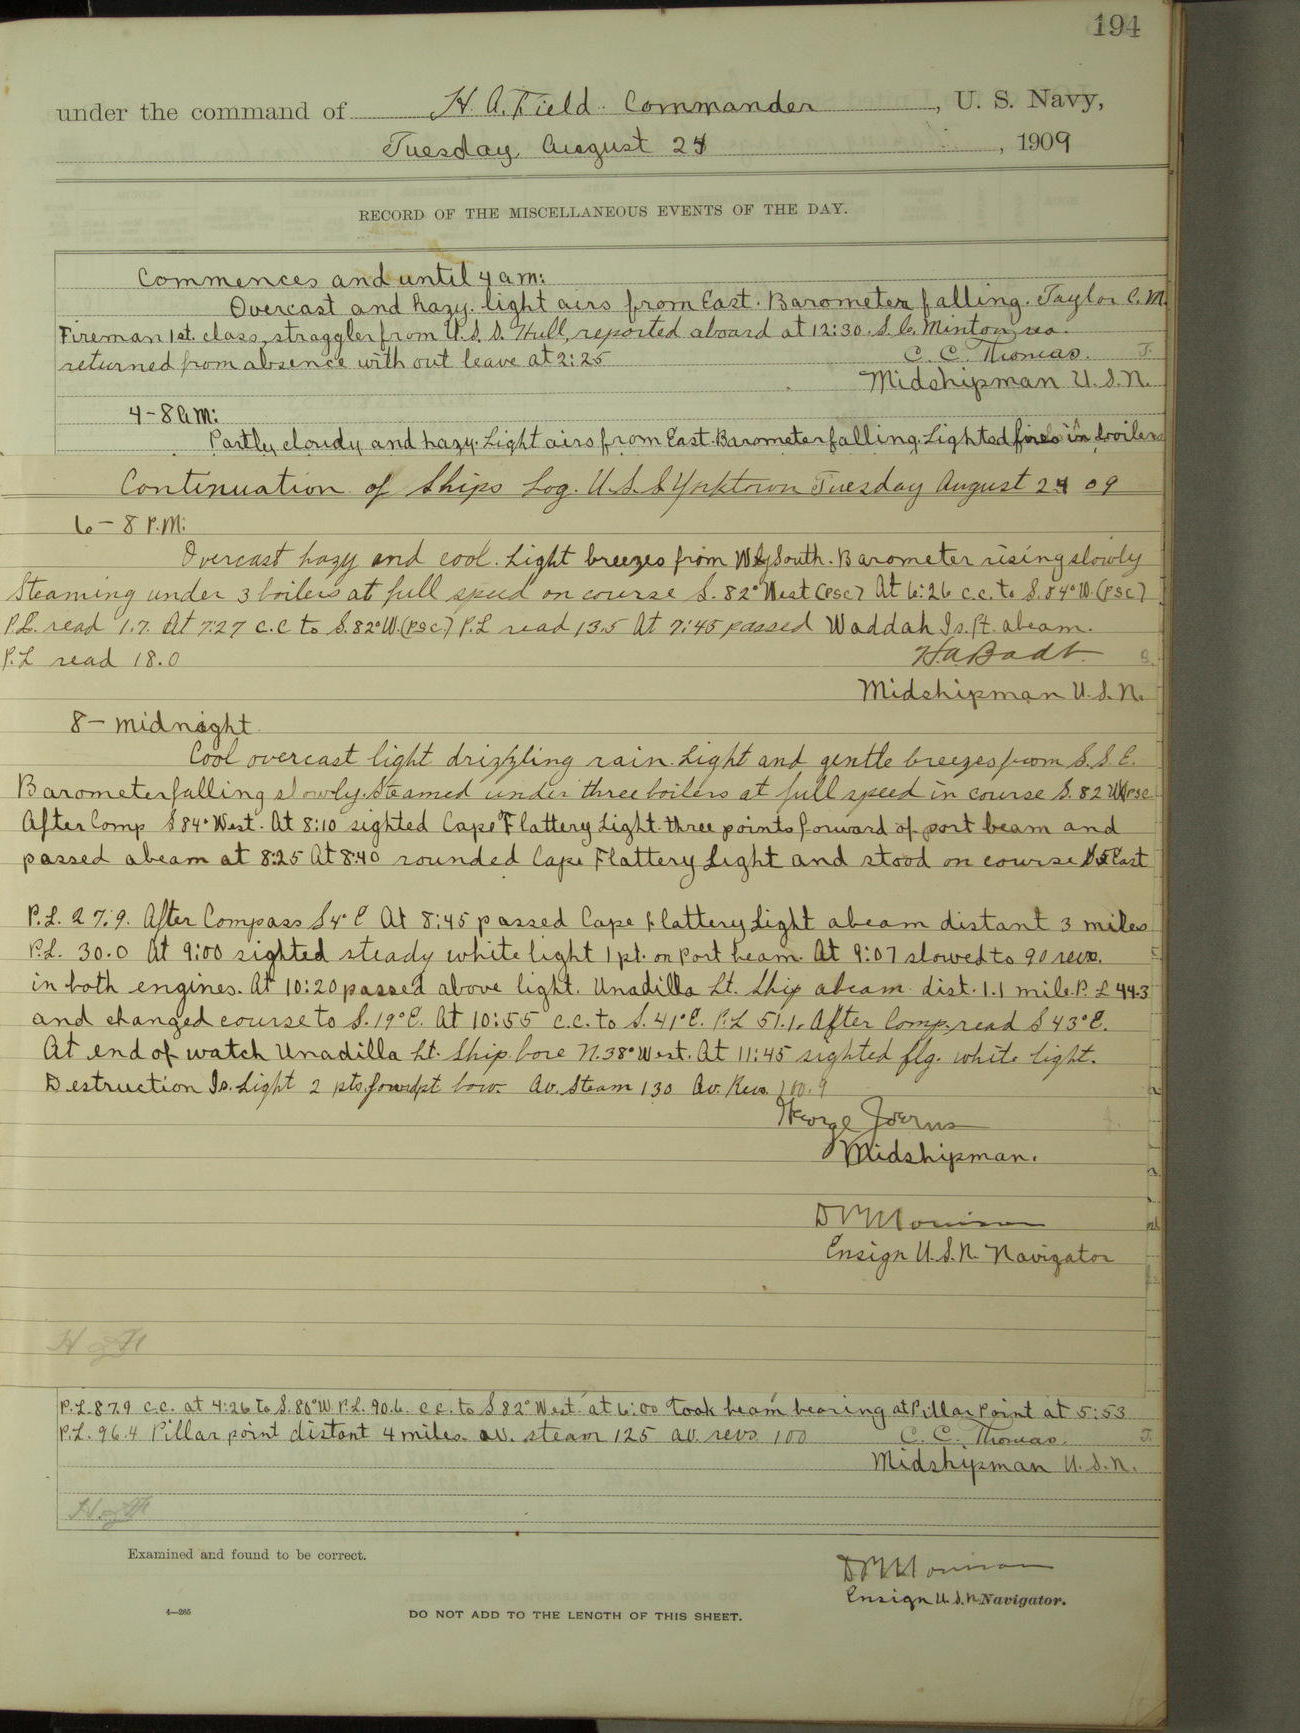 194
under the command of H. A. Field. Commander, U. S. Navy,
Tuesday, August 24, 1909
RECORD OF THE MISCELLANEOUS EVENTS OF THE DAY.
Commences and until 4 am:
Overcast and hazy. light airs from East. Barometer falling. Taylor C. M.
Fireman 1st. class, straggler from U.S.S. Hull, reported aboard at 12:30. S. C. Minton, sea.
returned from absence with out leave at 2:25
C. C. Thomas. T.
Midshipman U.S.N.
4-8 am:
Partly cloudy and hazy. Light airs from East. Barometer falling. Lighted fires in boilers
Continuation of Ships Log. U.S.S Yorktown Tuesday August 24 09
6-8 P.M:
Overcast hazy and cool. Light breezes from W by South. Barometer rising slowly
Steaming under 3 boilers at full speed on course S. 82° West (PSC) At 6:26 c.c. to S. 84° W. (PSC)
P.L. read 1.7. At 7:27 c.c to S. 82° W. (PSC) P.L read 13.5 At 7:45 passed Waddah Is. Pt. abeam.
P.L read 18.0
H. A. Badt
Midshipman U.S.N.
8- midnight
Cool overcast light drizzling rain. Light and gentle breezes from S.S.E.
Barometer falling slowly. Steamed under three boilers at full speed in course S. 82 W PSC
After Comp S 84° West. At 8:10 sighted Cape Flattery Light three points forward of port beam and
passed abeam at 8:25 At 8:40 rounded Cape Flattery Light and stood on course East
P.L. 27.9. After Compass S 4° E At 8:45 passed Cape Flattery Light abeam distant 3 miles
P.L. 30.0 At 9:00 sighted steady white light 1 pt. on port beam. At 9:07 slowed to 90 revs.
in both engines. At 10:20 passed above light. Unadilla Lt. Ship abeam dist. 1.1 mile. P. L 44.3
and changed course to S. 19° E. At 10:55 c.c. to S. 41° E. P.L 51.1. After Comp. read S 43° E.
At end of watch Unadilla Lt. Ship bore N. 38° West. At 11:45 sighted flg. white light.
Destruction Is. Light 2 pts forwd pt bow. Av. Steam 130 Av. Revs. 100.9
George Joerns
Midshipman.
Ensign U.S.N. Navigator
P.L. 87.9 c.c. at 4:26 to S. 80° W P.L. 90.6. c.c. to S 82° West at 6:00 took beam bearing at Pillar Point at 5:53
P.L. 96.4 Pillar point distant 4 miles. av. steam 125 av. revs. 100
C. C. Thomas. T.
Midshipman U.S.N.
Examined and found to be correct.
Ensign U.S.N. Navigator.
4—265
DO NOT ADD TO THE LENGTH OF THIS SHEET.